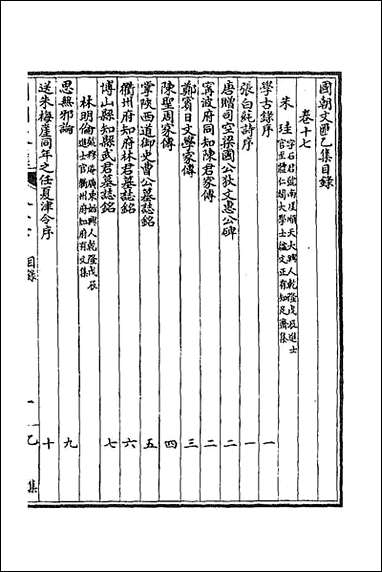 國朝文匯乙集目錄
卷十七
朱珪 字石君號南厓順天大興人乾隆戊辰進士官至體仁閣大學士諡文正有知足齋集
學古錄序 一
張白蒓詩序 一
唐贈司空梁國公狄文惠公碑 二
寗波府同知陳君家傳 二
鄭賓日文學家傳 三
陳聖周家傳 四
掌陝西道御史曹公墓誌銘 五
衢州府知府林君墓誌銘 六
博山縣知縣武君墓誌銘 七
林明倫 號穆庵廣東始興人乾隆戊辰進士官衢州府知府有文集
思無邪論 九
送朱梅崖同年之任夏津令序 十
目錄
一
乙
集